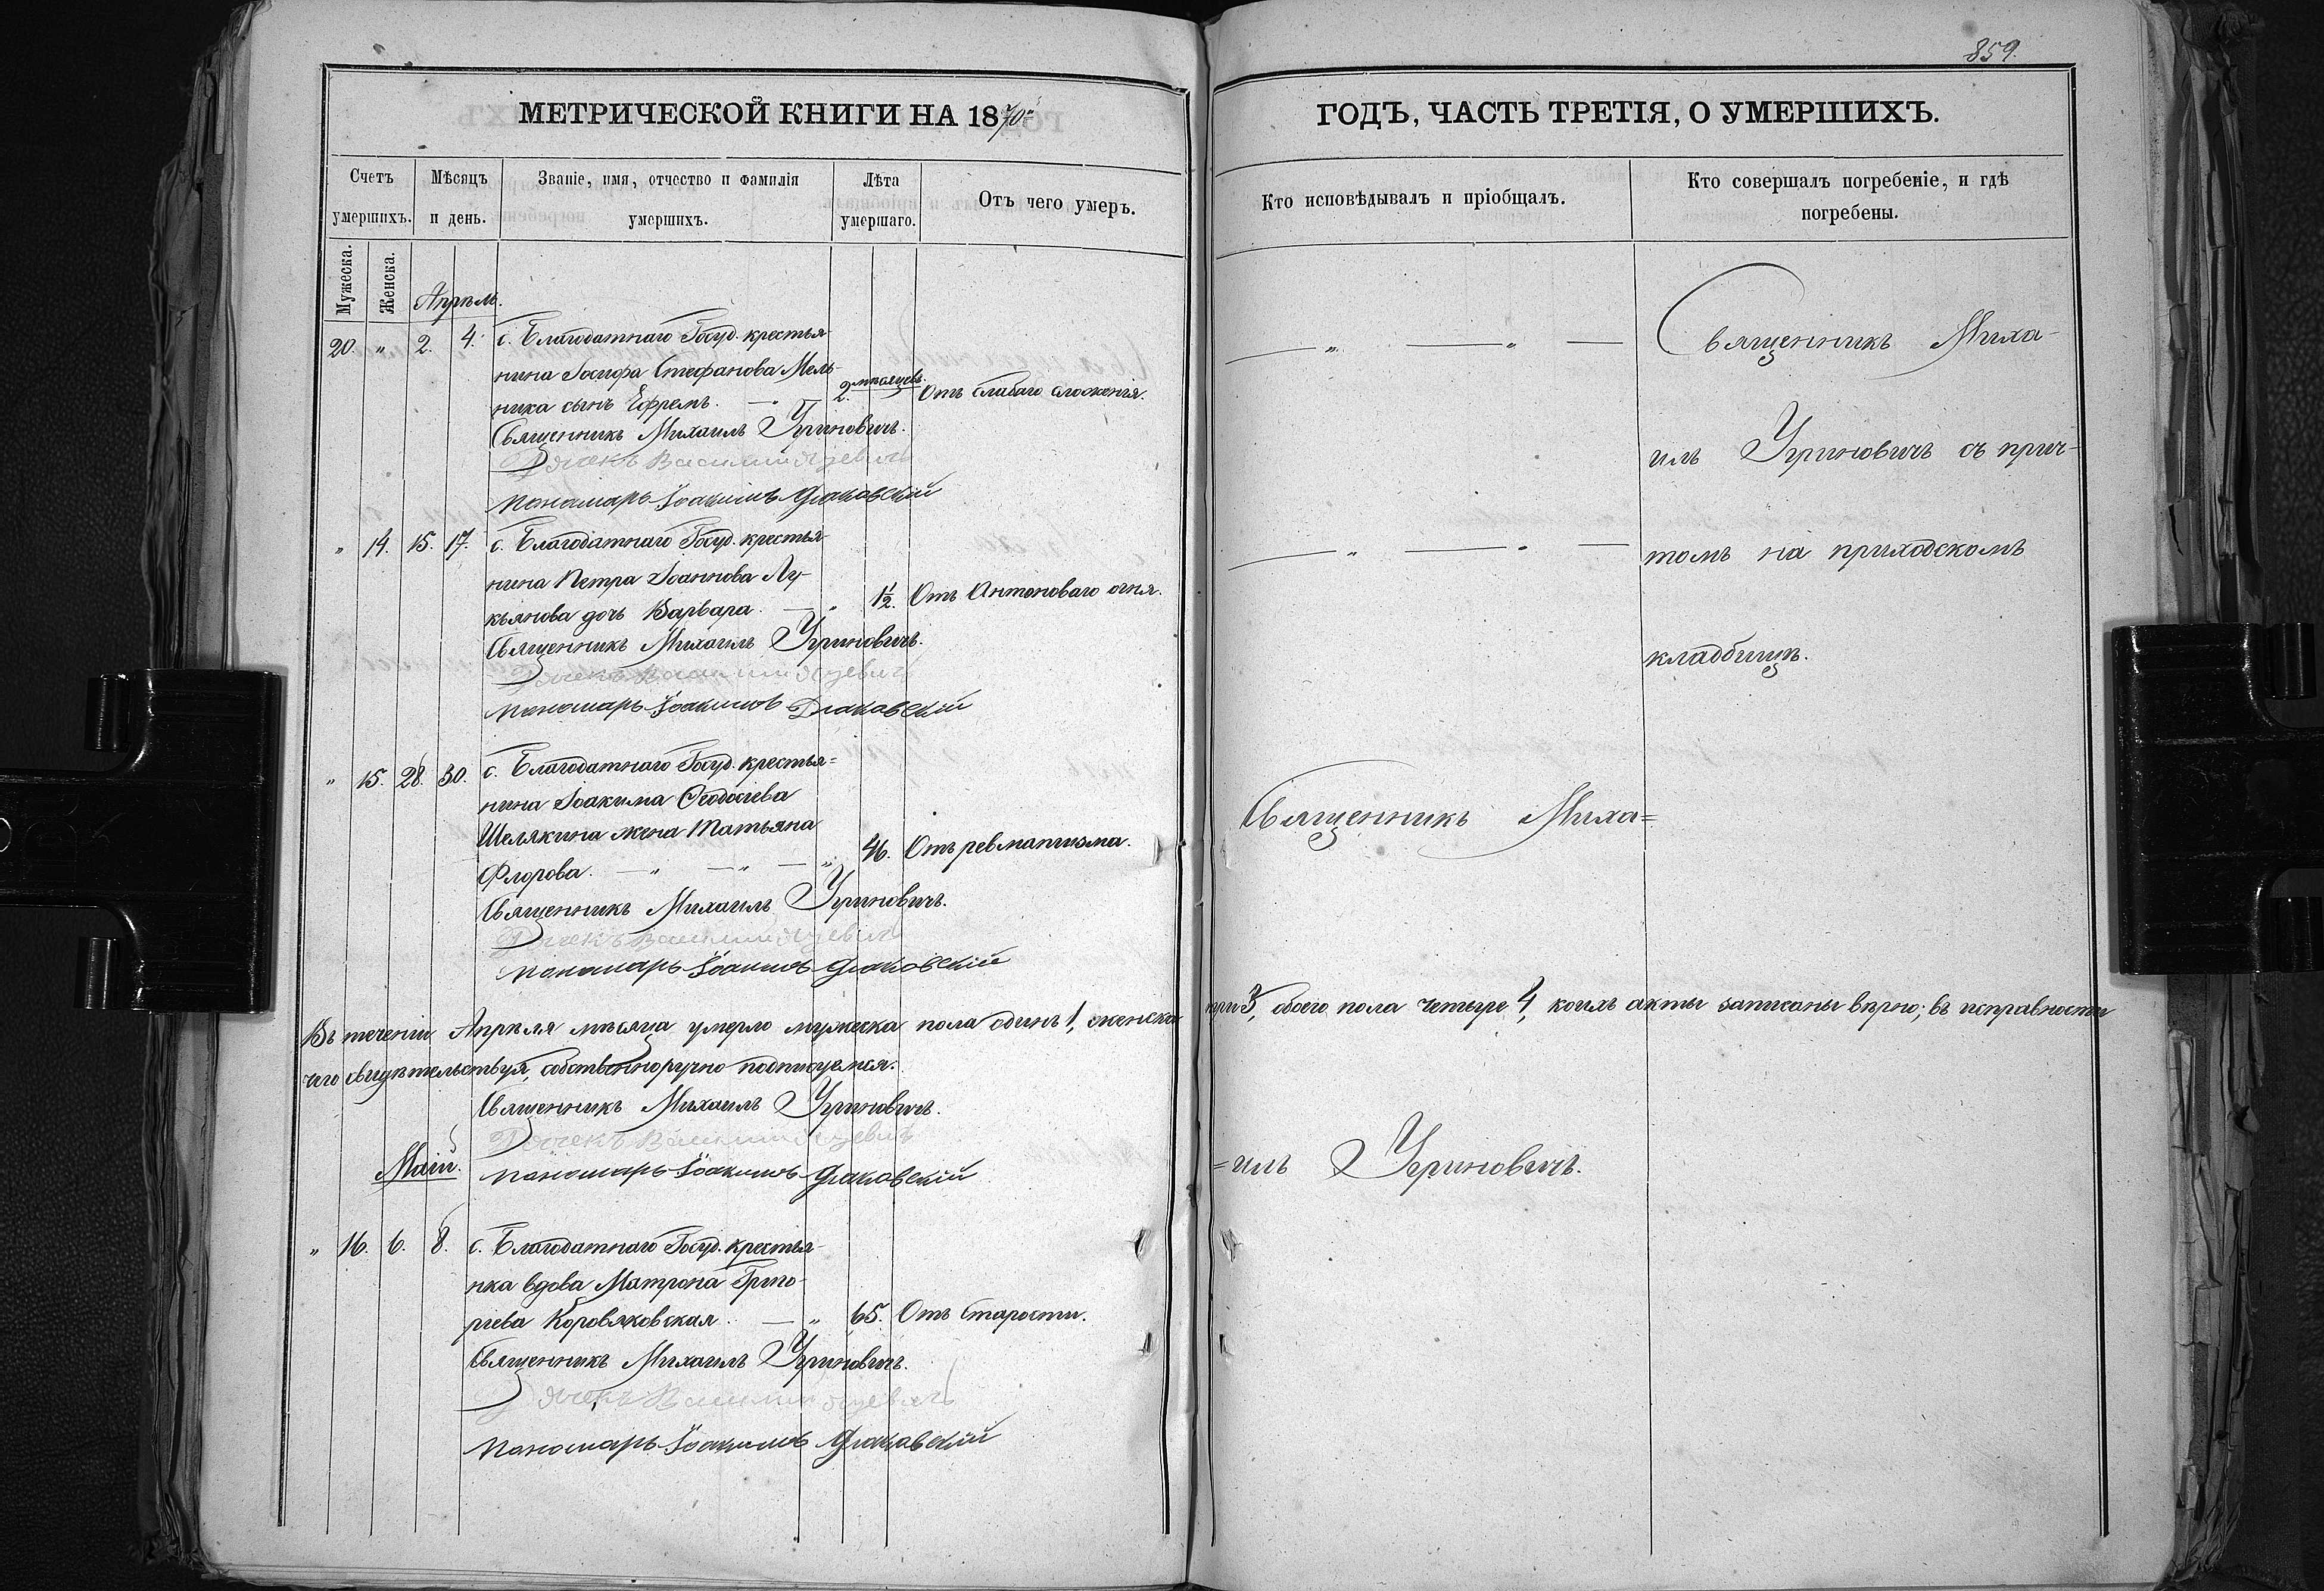 859.
МЕТРИЧЕСКОЙ КНИГИ НА 1870й
ГОДЪ, ЧАСТЬ ТРЕТІЯ, О УМЕРШИХЪ.
Счетъ умершихъ.
Мѣсяцъ и день.
Званіе, имя, отчество и фамилія умершихъ.
Лѣта умершаго.
Отъ чего умеръ.
Кто исповѣдывалъ и пріобщалъ.
Кто совершалъ погребеніе, и гдѣ погребены.
Мужеска.
Женска.
Апрѣль.
20. " 2. 4. с. Благодатнаго Госуд. крестья-
нина Іосифа Стефанова Мель-
ника сынъ Ефремъ. — " — 2. мѣсяцевъ. Отъ слабаго сложенія.
Священникъ Михаилъ Угриновичъ.
Дячекъ Василий
Пономарь Іоакимъ
" 14. 15. 17. с. Благодатнаго Госуд. крестья-
нина Петра Іоаннова Лу-
кьянова дочь Варвара. — " 1½. Отъ Антоноваго огня.
Священникъ Михаилъ Угриновичъ.
Дячекъ Василий
Пономарь Іоакимъ
" 15. 28. 30. с. Благодатнаго Госуд. крестья=
нина Іоакима Ѳеодосіева
Шелякина жена Татьяна
Флорова. — " — " — " 46. Отъ ревматизма.
Священникъ Михаилъ Угриновичъ.
Дячекъ Василий
Пономарь Іоакимъ
Въ теченіи Апрѣля мѣсяца умерло мужеска пола одинъ 1, женска три 3, обоего пола четыре 4, коихъ акты записаны вѣрно; въ исправности
чего свидѣтельствуя, собственноручно подписуемся.
Священникъ Михаилъ Угриновичъ.
Дячекъ Василий
Пономарь Іоакимъ
Май.
" 16. 6. 8. с. Благодатнаго Госуд. крестья-
нка вдова Матрона Григо-
ріева Коровяковская. — " 65. Отъ старости.
Священникъ Михаилъ Угриновичъ.
Дячекъ Василий
Пономарь Іоакимъ
— " — " —
— " — " —
Священникъ Миха=
=илъ Угриновичъ.
Священникъ Миха-
илъ Угриновичъ съ прич-
томъ на приходскомъ
кладбищѣ.